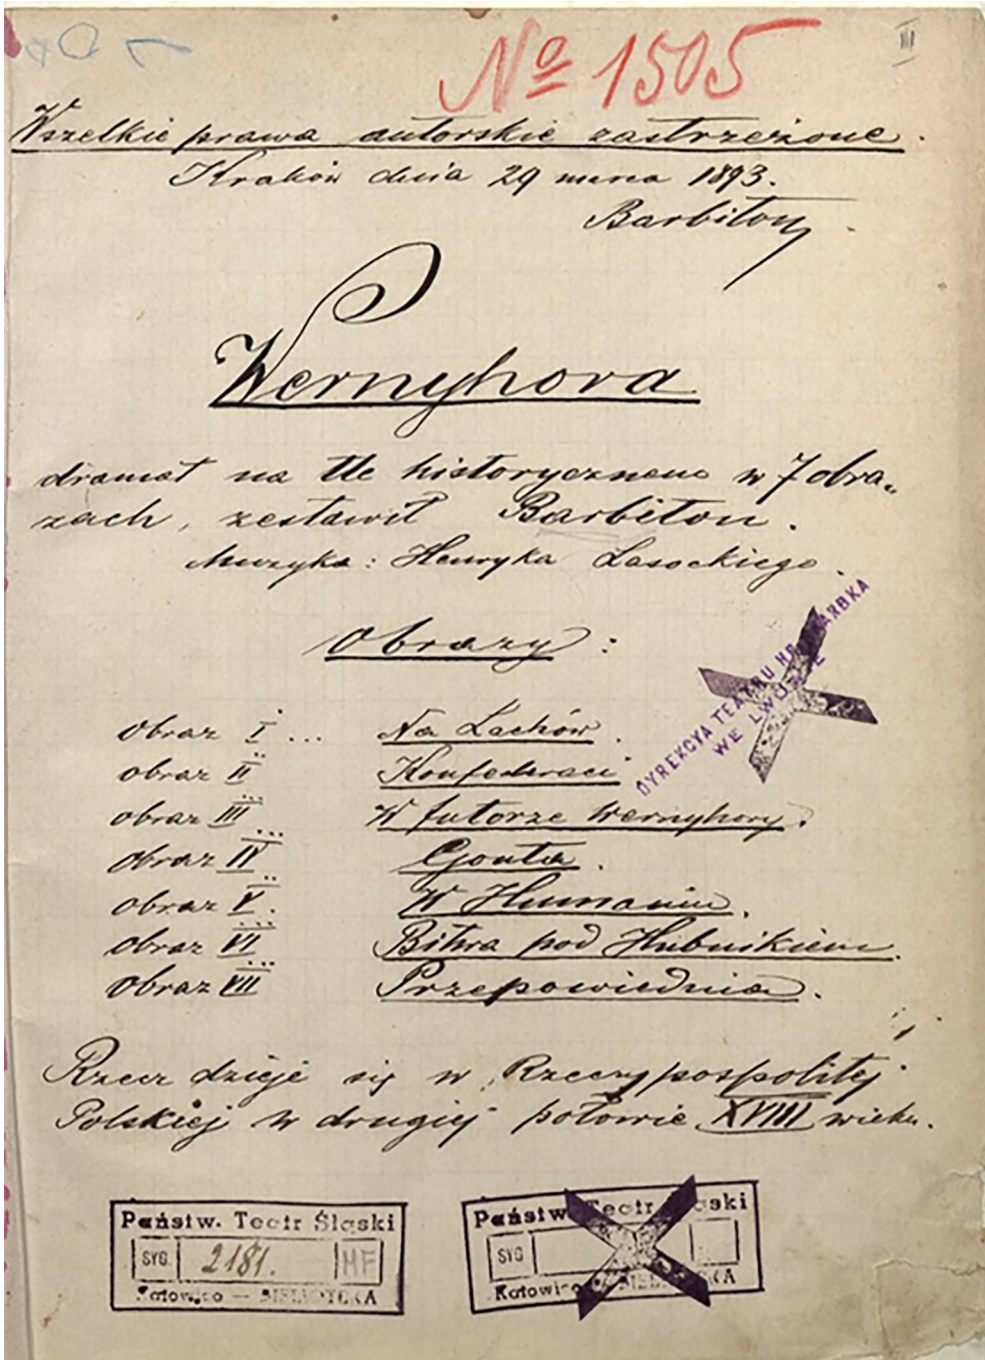 № 1505
III
Wszelkie prawa autorskie zastrzeżone.
Kraków dnia 29 marca 1893.
Barbiton
Wernyhora
dramat na tle historycznem w 7 obra-
zach, zestawił Barbiton.
Muzyka: Henryka Lasockiego.
Obrazy:
DYREKCYA TEATRU HR. SKARBKA
WE LWOWIE
obraz I ... Na Lachów.
obraz II Konfederaci
obraz III W futorze Wernyhory.
obraz IV Gonta.
obraz V. W Humaniu.
obraz VI Bitwa pod Hubnikiem.
obraz VII Przepowiednia.
Rzecz dzieje się w Rzeczypospolitej
Polskiej w drugiej połowie XVIII wieku.
Państw. Teatr Śląski
SYG. 2181. MF
Katowice — BIBLIOTEKA
Państw. Teatr Śląski
SYG
Katowice — BIBLIOTEKA